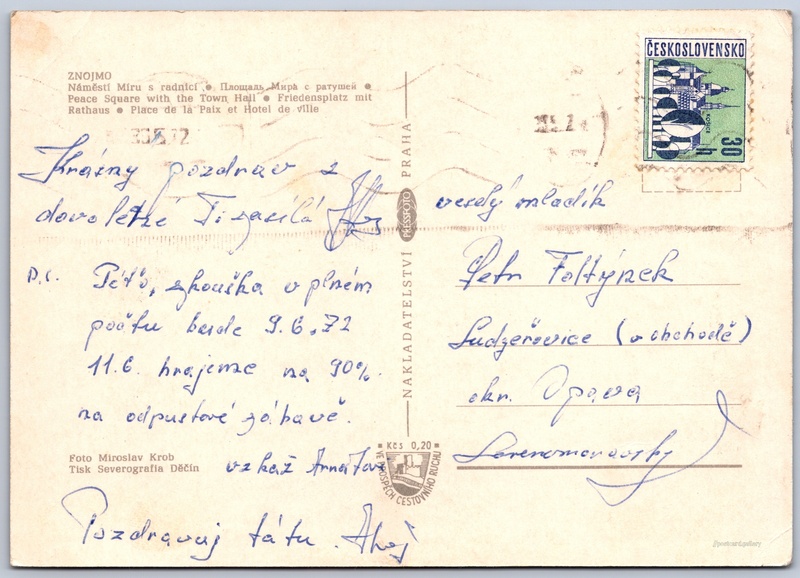 ZNOJMO
Náměstí Míru s radnicí ● Площадь Мира с ратушей ●
Peace Square with the Town Hall ● Friedensplatz mit
Rathaus ● Place de la Paix et Hotel de ville
ČESKOSLOVENSKO
KOŠICE
30 h
Krásný pozdrav z
dovolené Ti zasílá
P.S. Péťo, zkouška v plném
počtu bude 9.6.72
11.6. hrajeme na 90%.
na odpustové zábavě.
vzkaž
Pozdravuj tátu. Ahoj
Foto Miroslav Krob
Tisk Severografia Děčín
NAKLADATELSTVÍ PRESSFOTO PRAHA
Kčs 0,20
VE PROSPĚCH CESTOVNÍHO RUCHU
veselý mladík
Petr Foltýnek
Ludgeřovice (v obchodě)
okr. Opava
Severomoravský